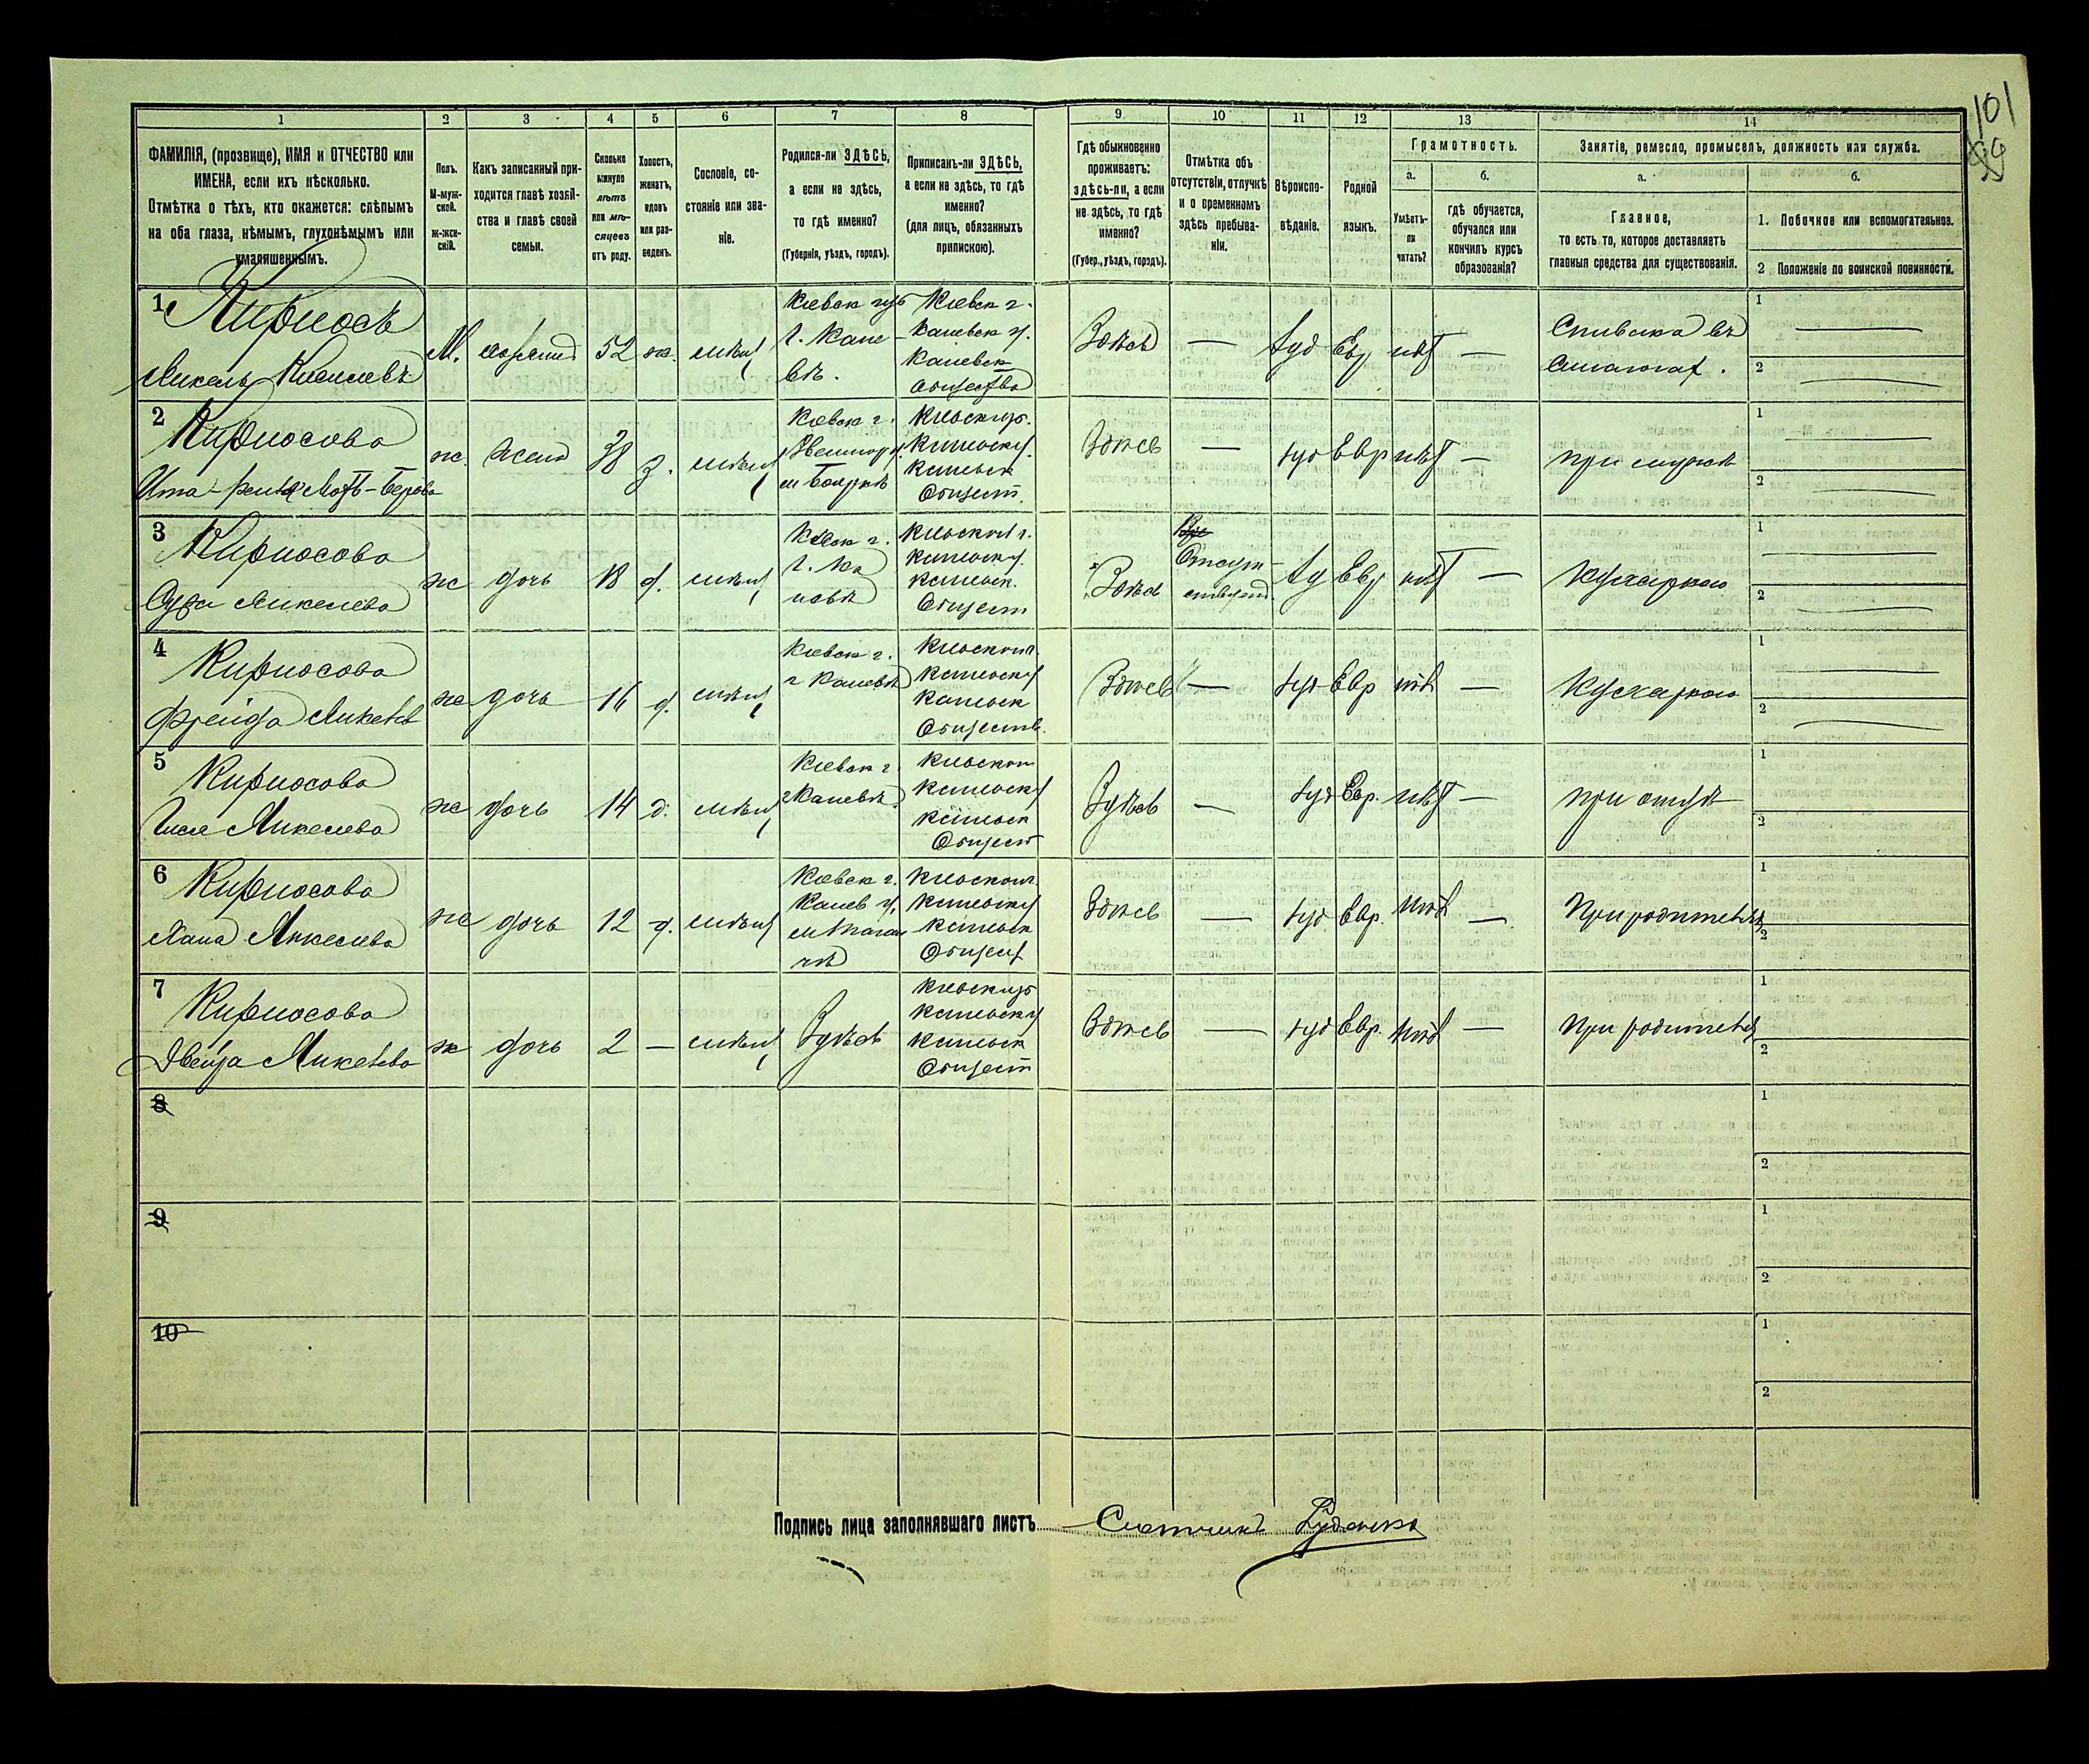 101
89
1
2
3
4
5
6
7
8
9
10
11
12
13
14
ФАМИЛІЯ, (прозвище), ИМЯ и ОТЧЕСТВО или
ИМЕНА, если ихъ нѣсколько.
Отмѣтка о тѣхъ, кто окажется: слѣпымъ
на оба глаза, нѣмымъ, глухонѣмымъ или
умалишеннымъ.
Полъ.
М-муж-
ской.
ж-жен-
скій.
Какъ записанный при-
ходится главѣ хозяй-
ства и главѣ своей
семьи.
Сколько
минуло
лѣтъ
или мѣ-
сяцевъ
отъ роду.
Холостъ,
женатъ,
вдовъ
или раз-
веденъ.
Сословіе, со-
стояніе или зва-
ніе.
Родился-ли ЗДѢСЬ,
а если не здѣсь,
то гдѣ именно?
(Губернія, уѣздъ, городъ).
Приписанъ-ли ЗДѢСЬ,
а если не здѣсь, то гдѣ
именно?
(для лицъ, обязанныхъ
припискою).
Гдѣ обыкновенно
проживаетъ:
здѣсь-ли, а если
не здѣсь, то гдѣ
именно?
(Губер., уѣздъ, городъ).
Отмѣтка объ
отсутствіи, отлучкѣ
и о временномъ
здѣсь пребыва-
ніи.
Вѣроиспо-
вѣданіе.
Родной
языкъ.
Грамотность.
а.
Умѣетъ-
ли
читать?
б.
гдѣ обучается,
обучался или
кончилъ курсъ
образованія?
Занятіе, ремесло, промыселъ, должность или служба.
а.
Главное,
то есть то, которое доставляетъ
главныя средства для существованія.
б.
1. Побочное или вспомогательное.
2 Положеніе по воинской повинности.
1
Кирносъ
Микель
М.
52
ж.
мѣщ
Кіевск губ
г. Кане-
вѣ.
Кіевск г.
Каневск у.
Каневск
Общество
Здѣсь
—
Іуд
Евр
нѣт
—
1
2
2
Кирносова
ж.
жена
38
з.
мѣщ
Кіевск г.
Кіевск губ.
Каневск у.
Каневск
Общест.
Здѣсь
—
Іуд
Евр
нѣт
—
при мужѣ
1
2
3
Кирносова
Сура Микелева
ж
дочь
18
д.
мѣщ
Кіевск г.
г. Ка
невѣ
Кіевской г.
Каневск у.
Каневск.
Общест
Здѣсь
Отсут-
ствует
Іуд
Евр
нѣт
—
Кухаркою
1
2
4
Кирносова
Фрейда Микелев
ж
дочь
16
д.
мѣщ
Кіевск г.
г Каневѣ
Кіевской г.
Каневск у
Каневск
Обществ.
Здѣсь
—
Іуд
Евр
нѣт
—
Кухаркою
1
2
5
Кирносова
Микелева
ж
дочь
14
д.
мѣщ
Кіевск г.
г Каневѣ
Кіевской
Каневск у
Каневск
Общест
Здѣсь
—
Іуд
Евр.
нѣт
—
при отцѣ
1
2
6
Кирносова
Хана Микелева
ж
дочь
12
д.
мѣщ
Кіевск г.
Канев у.
Кіевской г.
Каневск у
Каневск
Общест
Здѣсь
—
Іуд
Евр.
нѣт
—
При родителях
1
2
7
Кирносова
Двейра Микелева
ж
дочь
2
—
мѣщ
Здѣсь
Кіевск губ
Каневск у
Каневск
Общест
Здѣсь
—
Іуд
Евр.
нѣт
—
При родителях
1
2
8
1
2
9
1
2
10
1
2
Подпись лица заполнявшаго листъ Счетчикъ